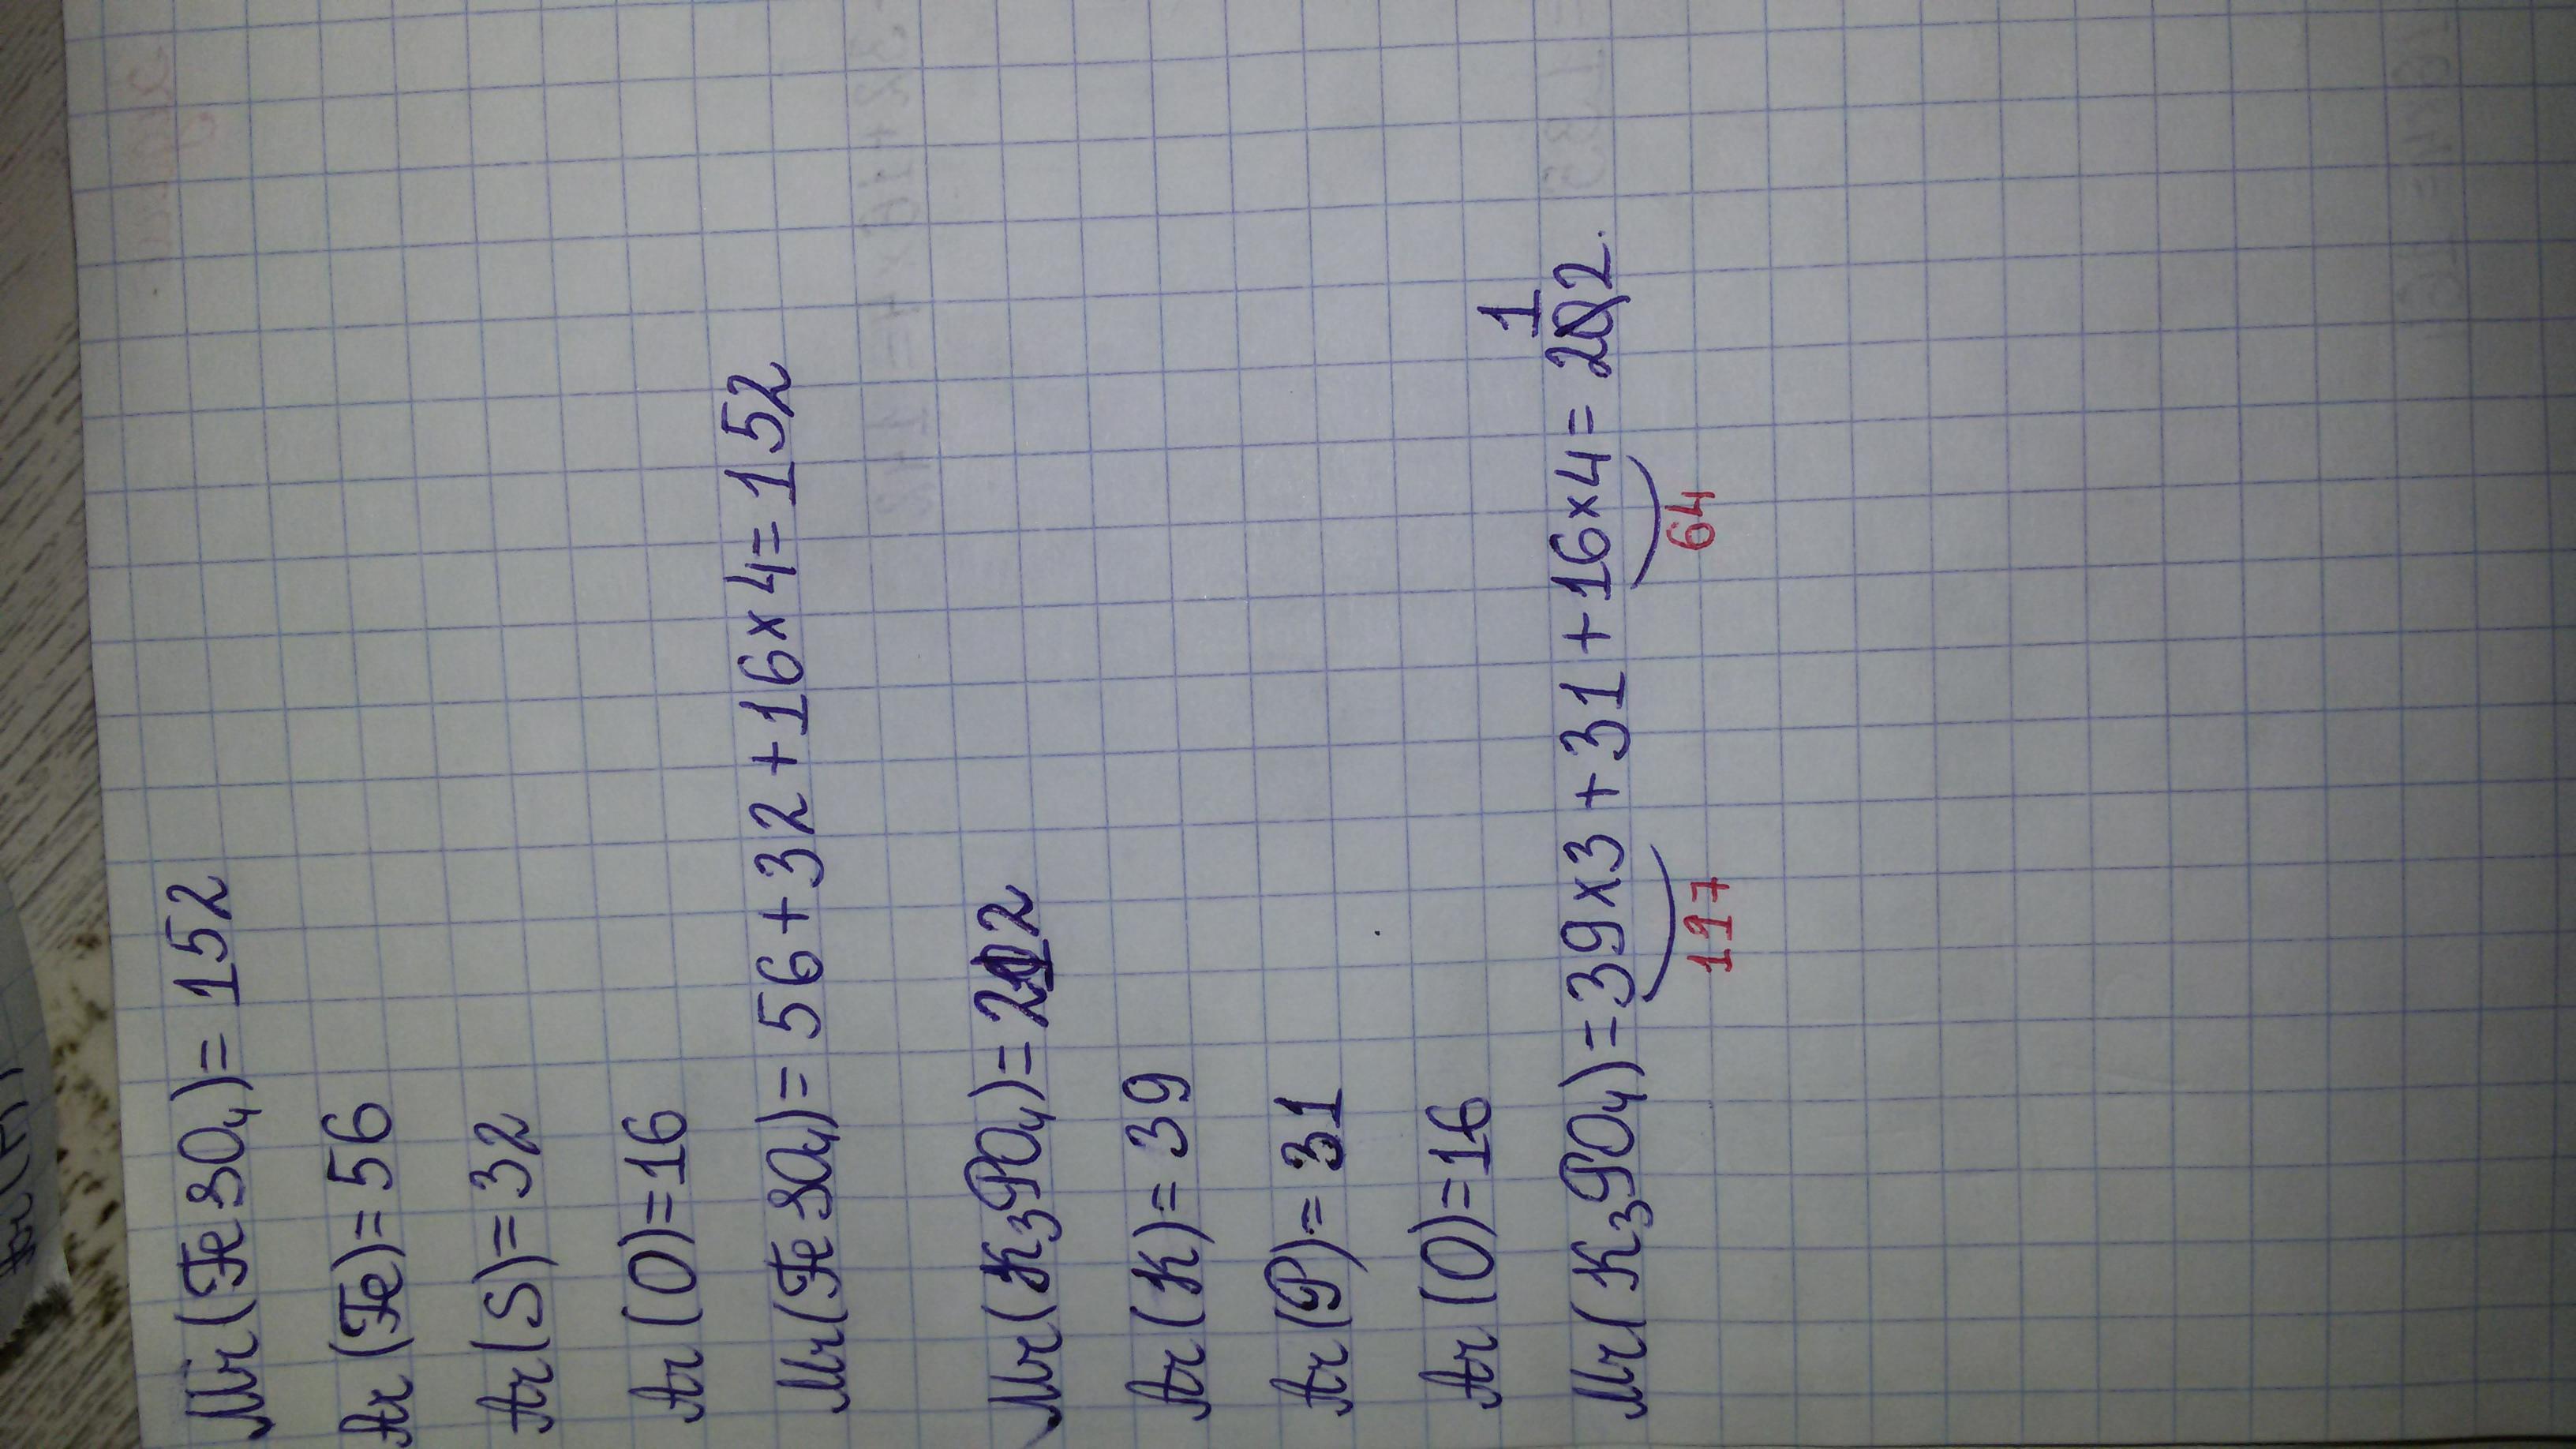 Mr(FeSO₄)=152
Ar(Fe)=56
Ar(S)=32
Ar(O)=16
Mr(FeSO₄)=56+32+16×4=152
Mr(K₃PO₄)=212
Ar(K)=39
Ar(P)=31
Ar(O)=16
1
Mr(K₃PO₄)=39×3+31+16×4=202.
117 64